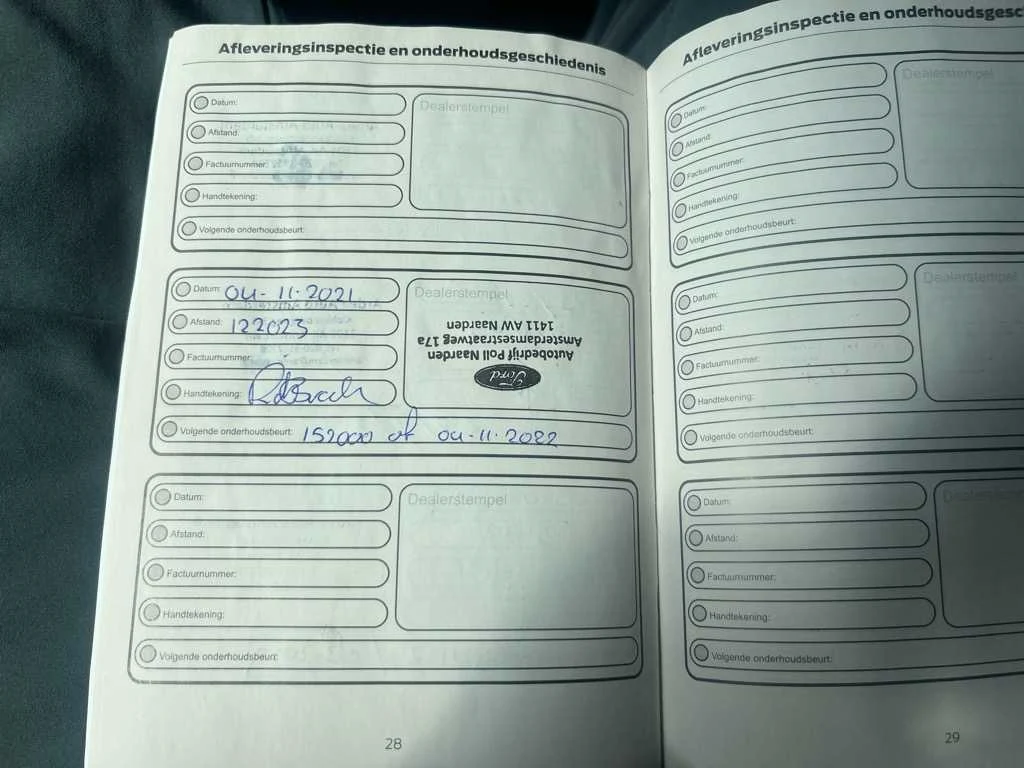 Afleveringsinspectie en onderhoudsgeschiedenis
Datum:
Dealerstempel
Afstand:
Factuurnummer:
Handtekening:
Volgende onderhoudsbeurt:
Datum: 04-11-2021
Dealerstempel
Afstand: 122023
Factuurnummer:
Handtekening:
Autobedrijf Poll Naarden
Amsterdamsestraatweg 17a
1411 AW Naarden
Ford
Volgende onderhoudsbeurt: 152000 of 04-11-2022
Datum:
Dealerstempel
Afstand:
Factuurnummer:
Handtekening:
Volgende onderhoudsbeurt:
28
Afleveringsinspectie en onderhoudsgesc
Datum:
Dealerstempel
Afstand:
Factuurnummer:
Handtekening:
Volgende onderhoudsbeurt:
Datum:
Dealerstempel
Afstand:
Factuurnummer:
Handtekening:
Volgende onderhoudsbeurt:
Datum:
Dealerstempel
Afstand:
Factuurnummer:
Handtekening:
Volgende onderhoudsbeurt:
29